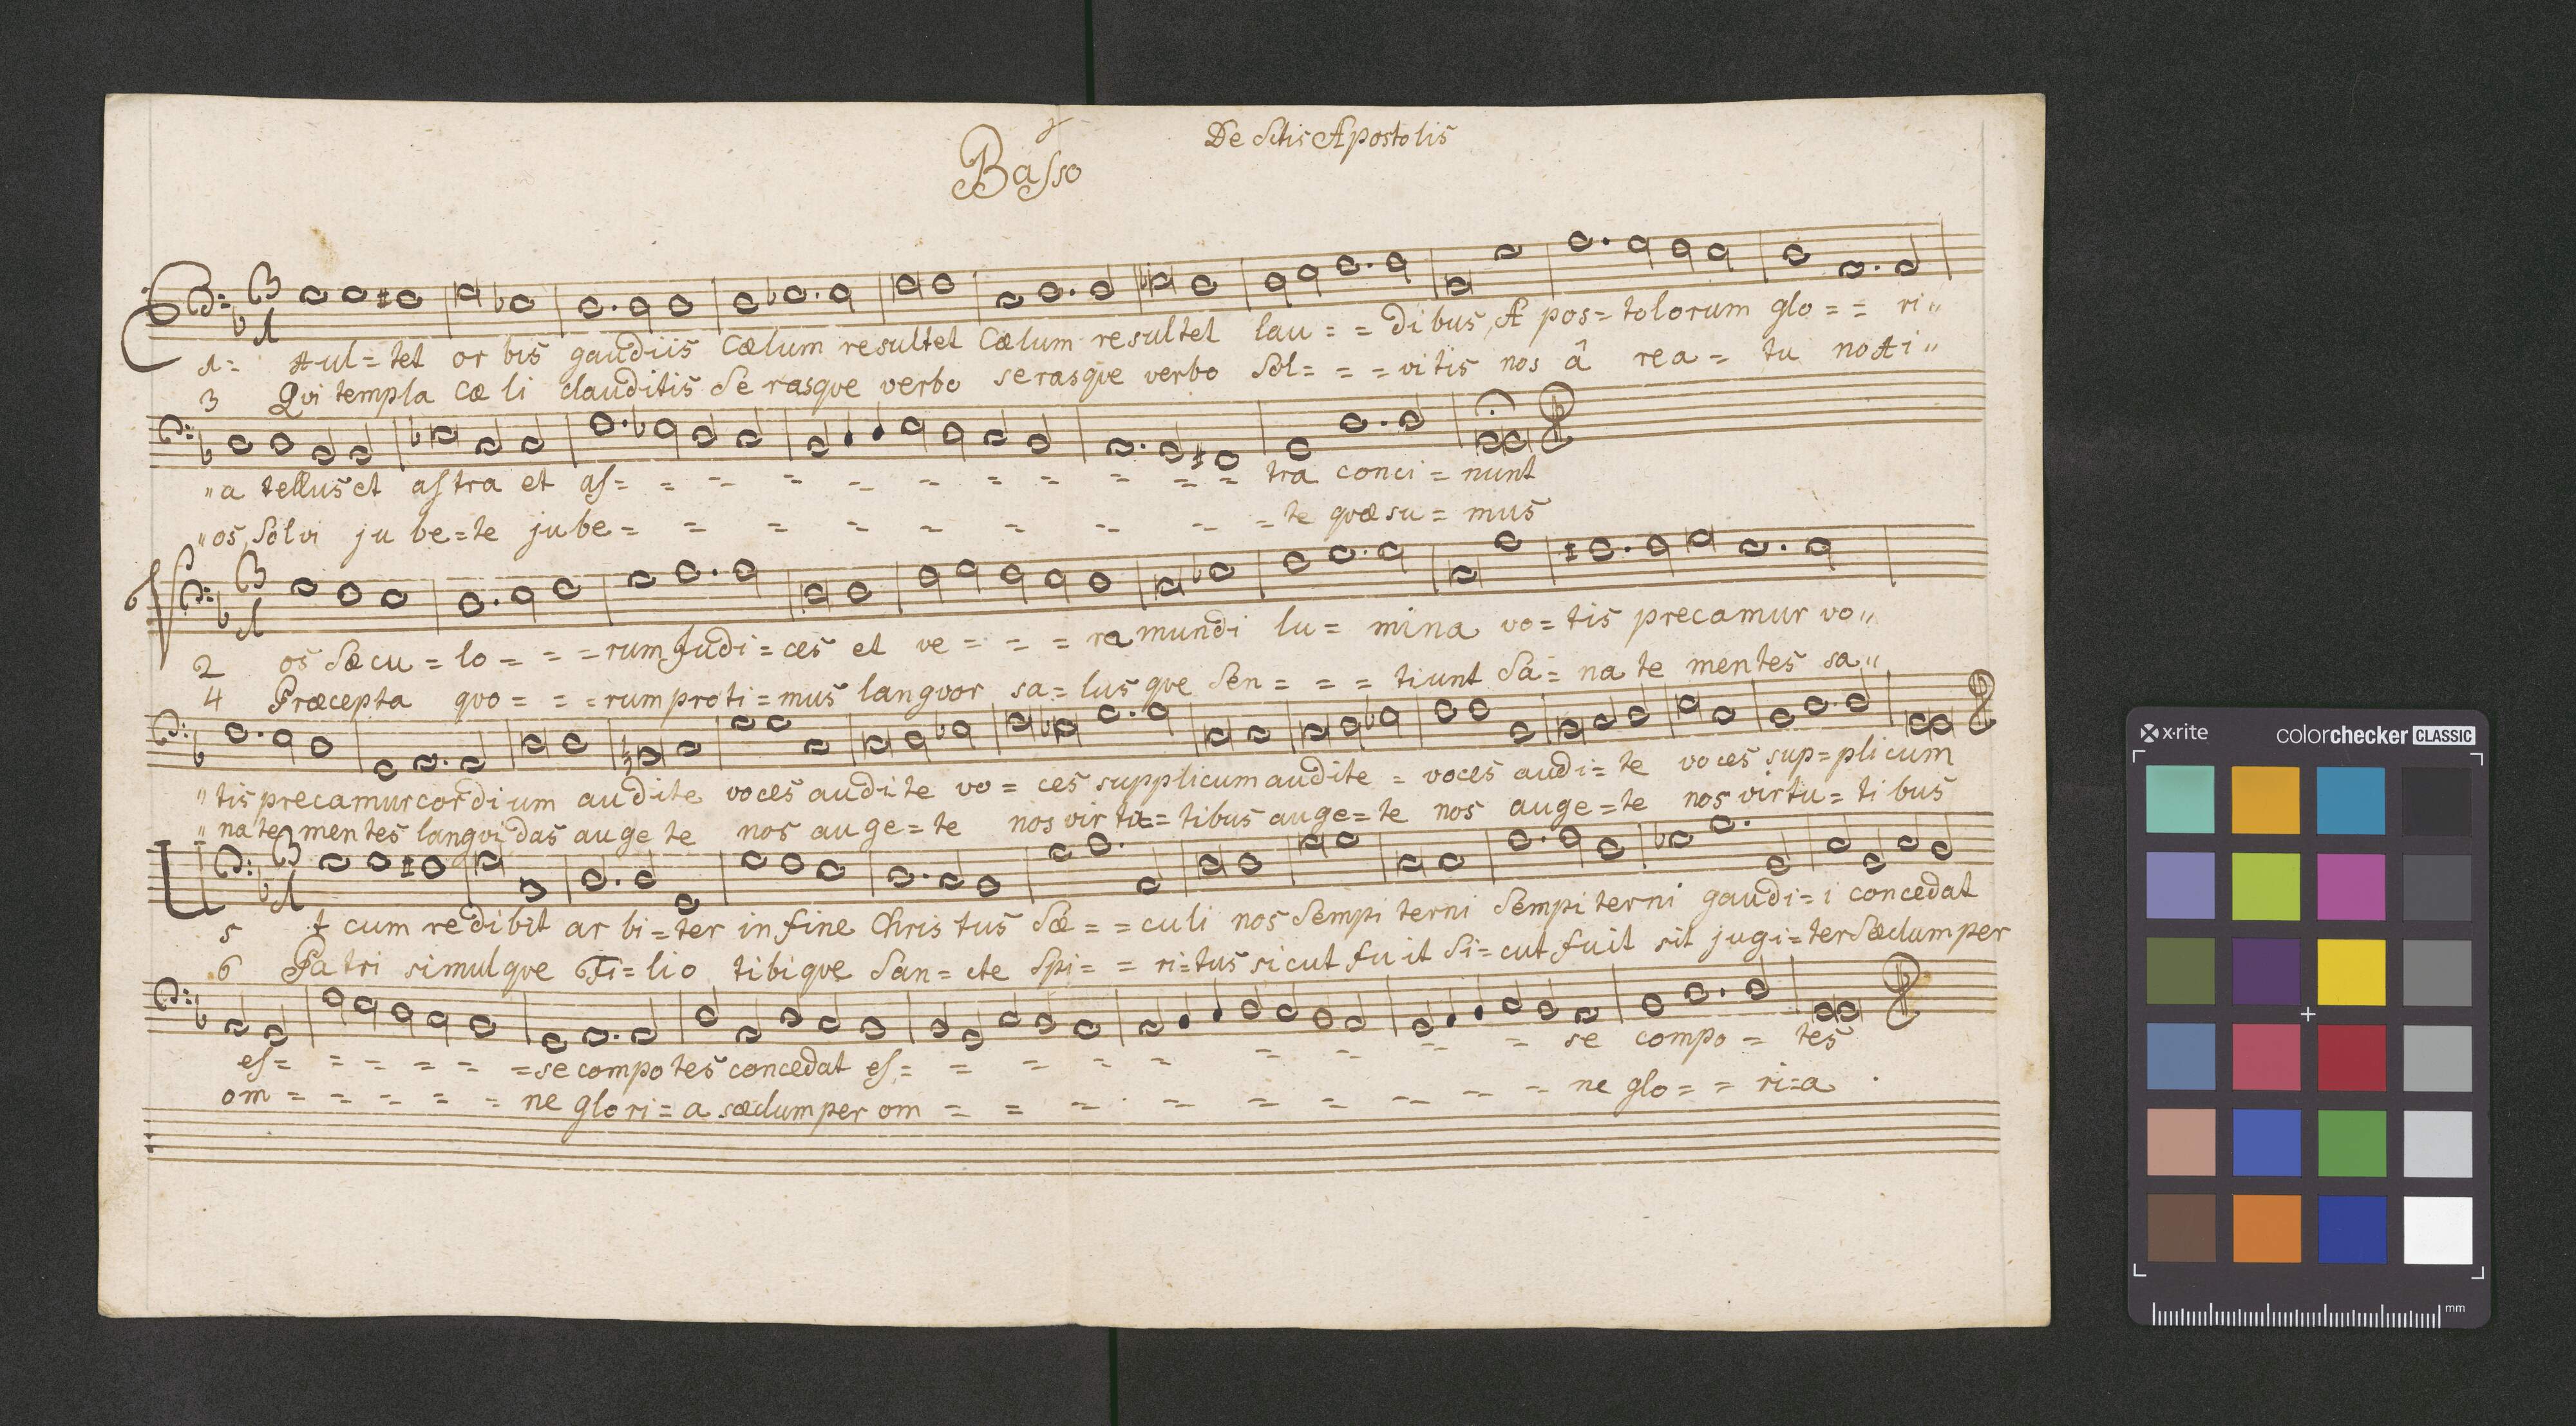 De Sctis Apostolis
Basso
1= Exul=tet or bis gaudiis Cælum resultet Cælum resultet lau = = dibus, A pos=tolorum glo = = ri"
3 Qvi templa Cæ li clauditis Se rasqve verbo serasqve verbo Sol = = = vitis nos â rea = tu noxi"
"a tellus et astra et as= = = = = = = = = = = tra conci = nunt
"os, Solvi ju be=te jube= = = = = = = = = te qvæsu = mus
2 Vos Sæcu = lo = = = rum Judi = ces et ve = = = ra mundi lu = mina vo = tis precamur vo"
4 Præcepta qvo = = = rum proti = mus langvor sa = lus qve Sen = = = tiunt Sa = na te mentes sa"
" tis precamur cordium audite voces audi te vo = ces supplicum audite = voces audi = te voces sup=plicum
" nate mentes langvi das au ge te nos au ge = te nos vir tu = tibus auge = te nos auge = te nos virtu = ti bus
5 Ut cum redibit ar bi = ter in fine Chris tus Sæ = = culi nos Sempi terni Sempi terni gaudi = i concedat
6 Pa tri simulqve Fi = lio tibiqve San = cte Spi = = ri = tus sicut fu it Si = cut fuit sit jugi = ter Sæclum per
es= = = = = = se compo tes concedat es= = = = = = = = = se compo = tes
om = = = = = ne glo ri = a sæclum per om = = = = = = = = = ne glo = = ri=a.
x·rite
colorchecker CLASSIC
mm